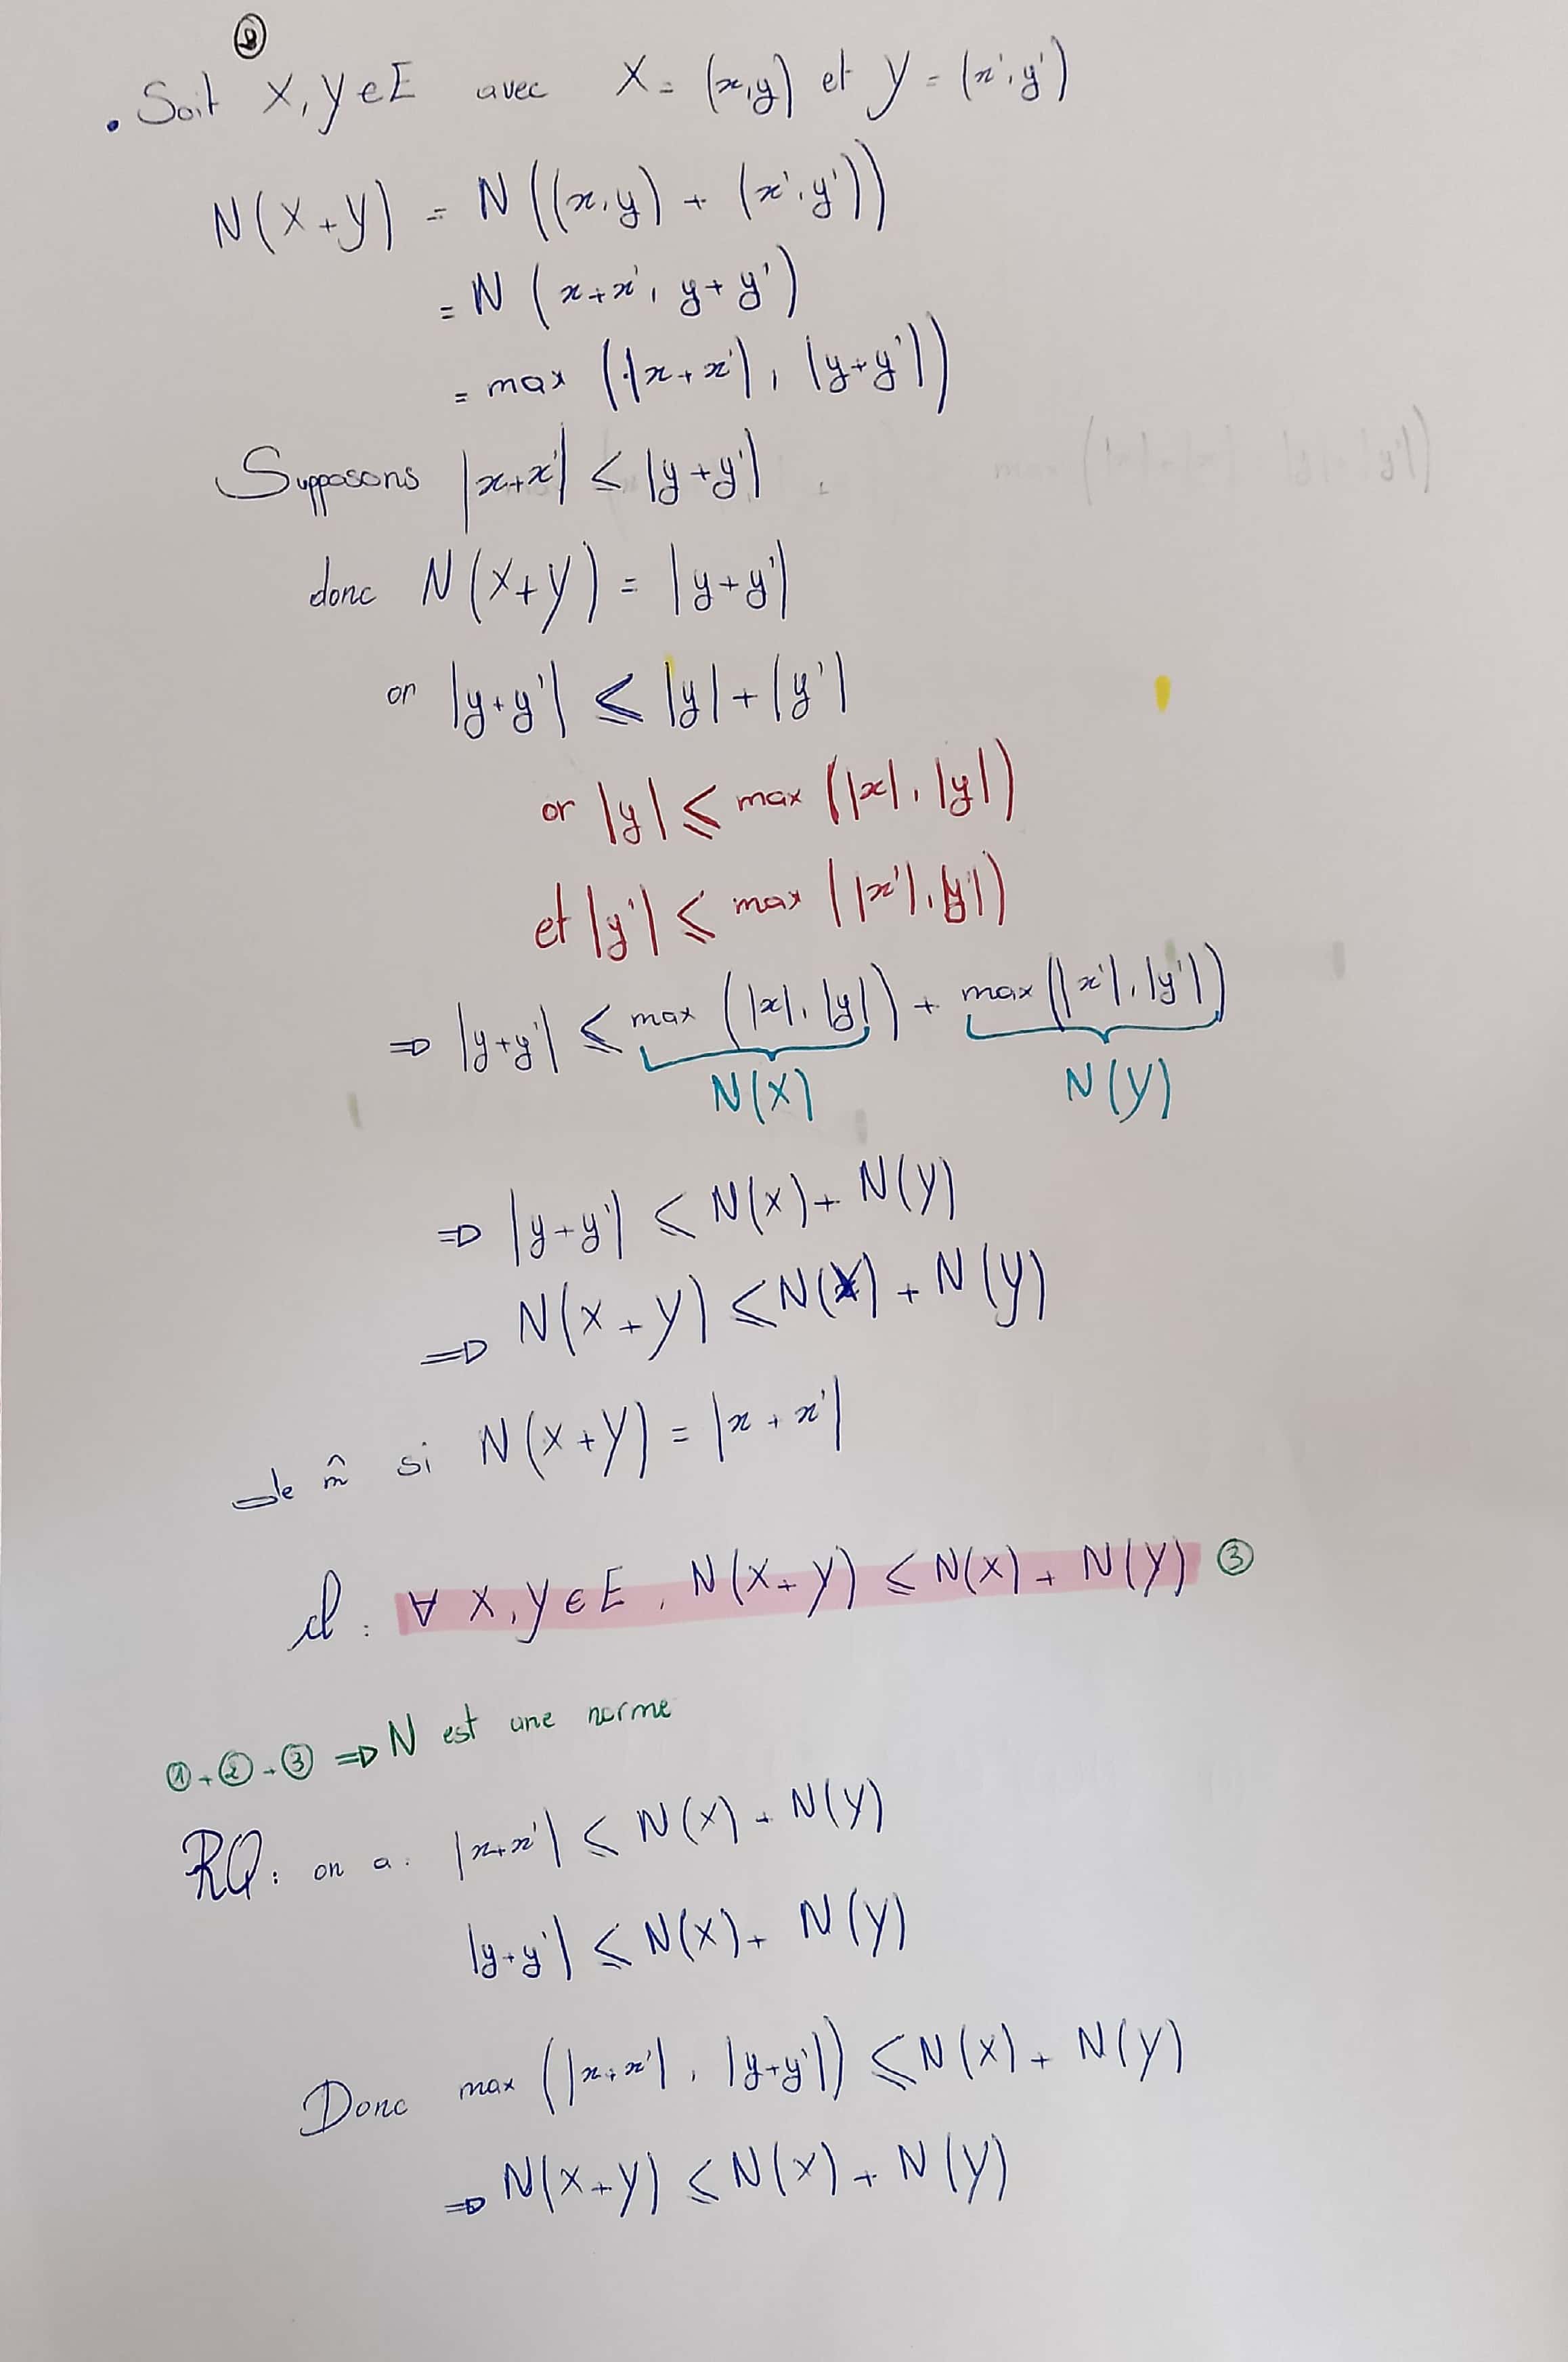 ⑧
• Soit X, Y ∈ E avec X = (x,y) et Y = (x',y')
N(X+Y) = N((x,y) + (x',y'))
= N(x+x', y+y')
= max (|x+x'|, |y+y'|)
Supposons |x+x'| ≤ |y+y'|
donc N(X+Y) = |y+y'|
or |y+y'| ≤ |y|+|y'|
or |y| ≤ max (|x|, |y|)
et |y'| ≤ max (|x'|, |y'|)
⇒ |y+y'| ≤ max (|x|, |y|) + max (|x'|, |y'|)
N(X) N(Y)
⇒ |y+y'| ≤ N(X) + N(Y)
⇒ N(X+Y) ≤ N(X) + N(Y)
de m̂ si N(X+Y) = |x+x'|
cl : ∀ X, Y ∈ E, N(X+Y) ≤ N(X) + N(Y) ③
①+②+③ ⇒ N est une norme
RQ : on a : |x+x'| ≤ N(X) + N(Y)
|y+y'| ≤ N(X) + N(Y)
Donc max (|x+x'|, |y+y'|) ≤ N(X) + N(Y)
⇒ N(X+Y) ≤ N(X) + N(Y)